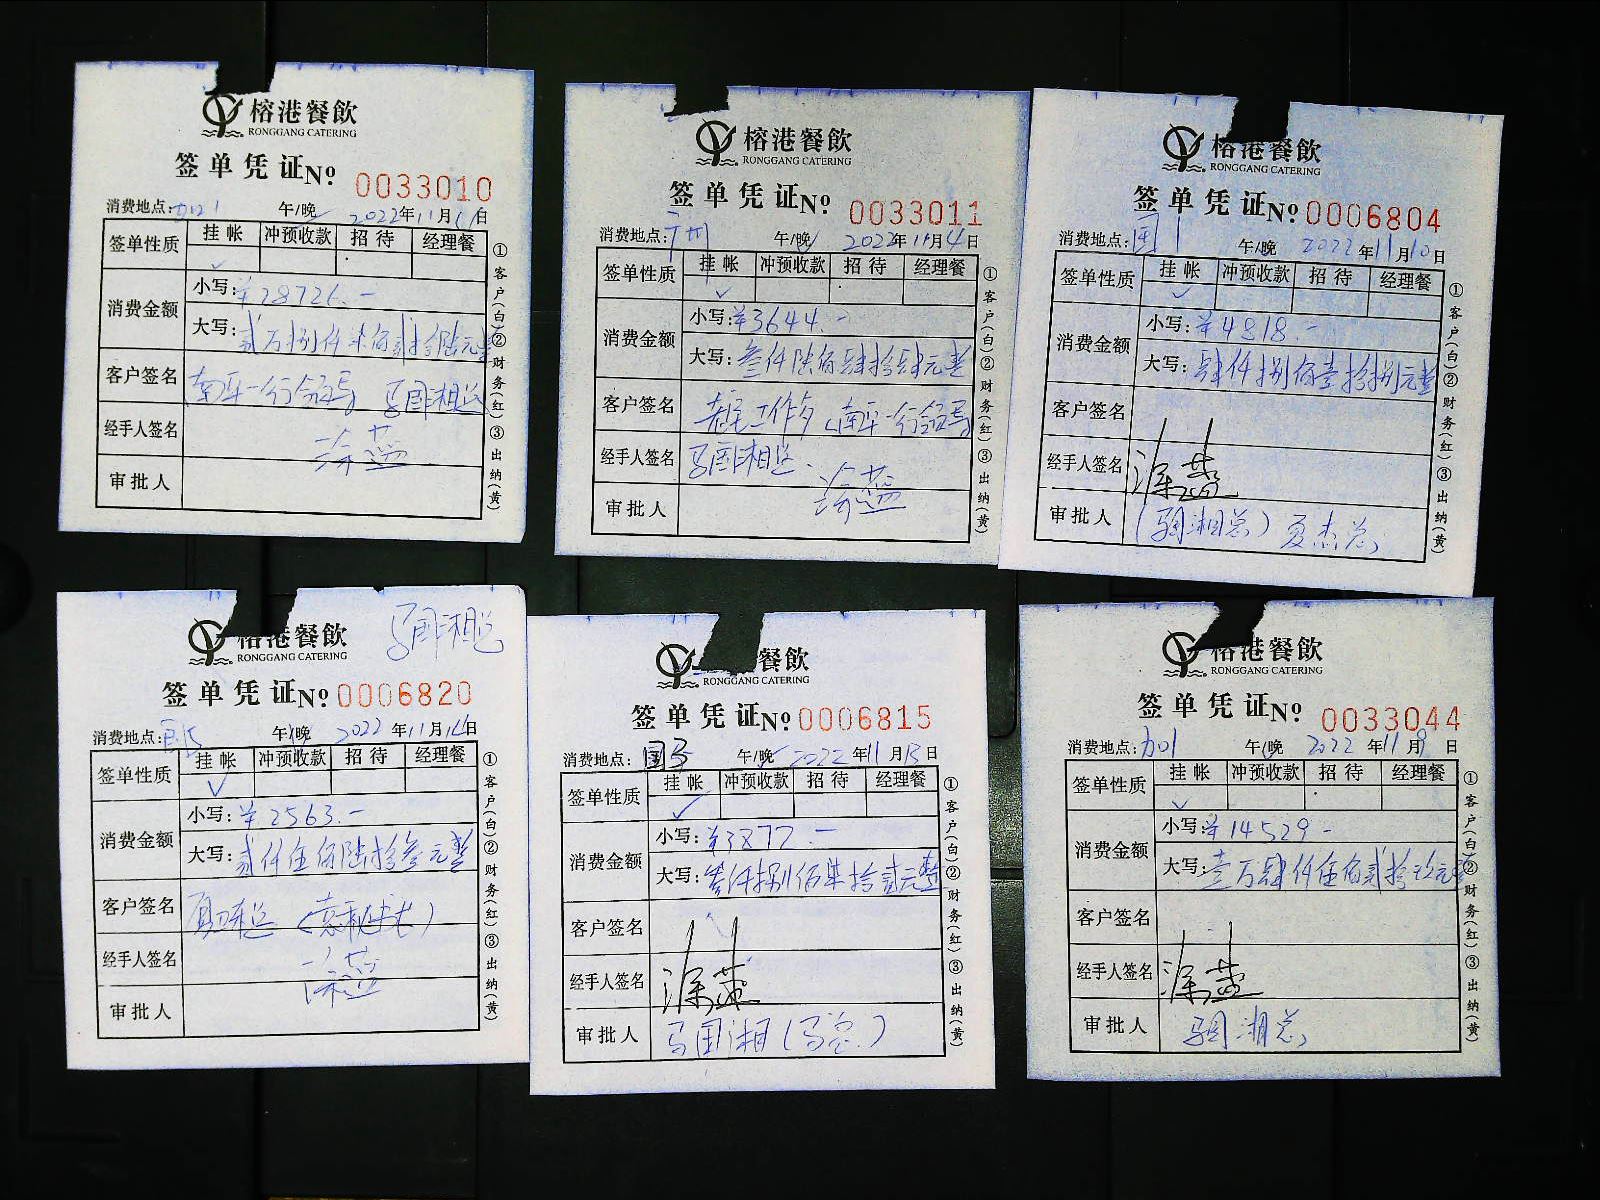 榕港餐飲
RONGGANG CATERING
签单凭证No 0033010
消费地点: 午/晚 2022年11月 日
签单性质 挂帐 冲预收款 招待 经理餐
消费金额 小写:¥28726.-
大写:贰万捌仟柒佰贰拾陆元整
客户签名 南平一行领导 马国湘总
经手人签名 涂蕊
审批人
①客户(白)②财务(红)③出纳(黄)
榕港餐飲
RONGGANG CATERING
签单凭证No 0033011
消费地点:广州 午/晚 2022年11月4日
签单性质 挂帐 冲预收款 招待 经理餐
消费金额 小写:¥3644.-
大写:叁仟陆佰肆拾肆元整
客户签名 工作 (南平一行领导
经手人签名 马国湘总. 涂蕊
审批人
①客户(白)②财务(红)③出纳(黄)
榕港餐飲
RONGGANG CATERING
签单凭证No 0006804
消费地点:国1 午/晚 2022年11月10日
签单性质 挂帐 冲预收款 招待 经理餐
消费金额 小写:¥4818.-
大写:肆仟捌佰壹拾捌元整
客户签名
经手人签名
审批人 (马国湘总) 夏杰总
①客户(白)②财务(红)③出纳(黄)
马国湘总
榕港餐飲
RONGGANG CATERING
签单凭证No 0006820
消费地点: 午/晚 2022年11月 日
签单性质 挂帐 冲预收款 招待 经理餐
消费金额 小写:¥2563.-
大写:贰仟伍佰陆拾叁元整
客户签名 (袁秘书长)
经手人签名
审批人
①客户(白)②财务(红)③出纳(黄)
餐飲
RONGGANG CATERING
签单凭证No 0006815
消费地点:国3 午/晚 2022年11月13日
签单性质 挂帐 冲预收款 招待 经理餐
消费金额 小写:¥3877.-
大写:叁仟捌佰柒拾 元整
客户签名
经手人签名
审批人 马国湘(马总)
①客户(白)②财务(红)③出纳(黄)
榕港餐飲
RONGGANG CATERING
签单凭证No 0033044
消费地点:加1 午/晚 2022年11月9日
签单性质 挂帐 冲预收款 招待 经理餐
消费金额 小写:¥14529-
大写:壹万肆仟伍佰贰拾玖元整
客户签名
经手人签名
审批人 马国湘总
①客户(白)②财务(红)③出纳(黄)